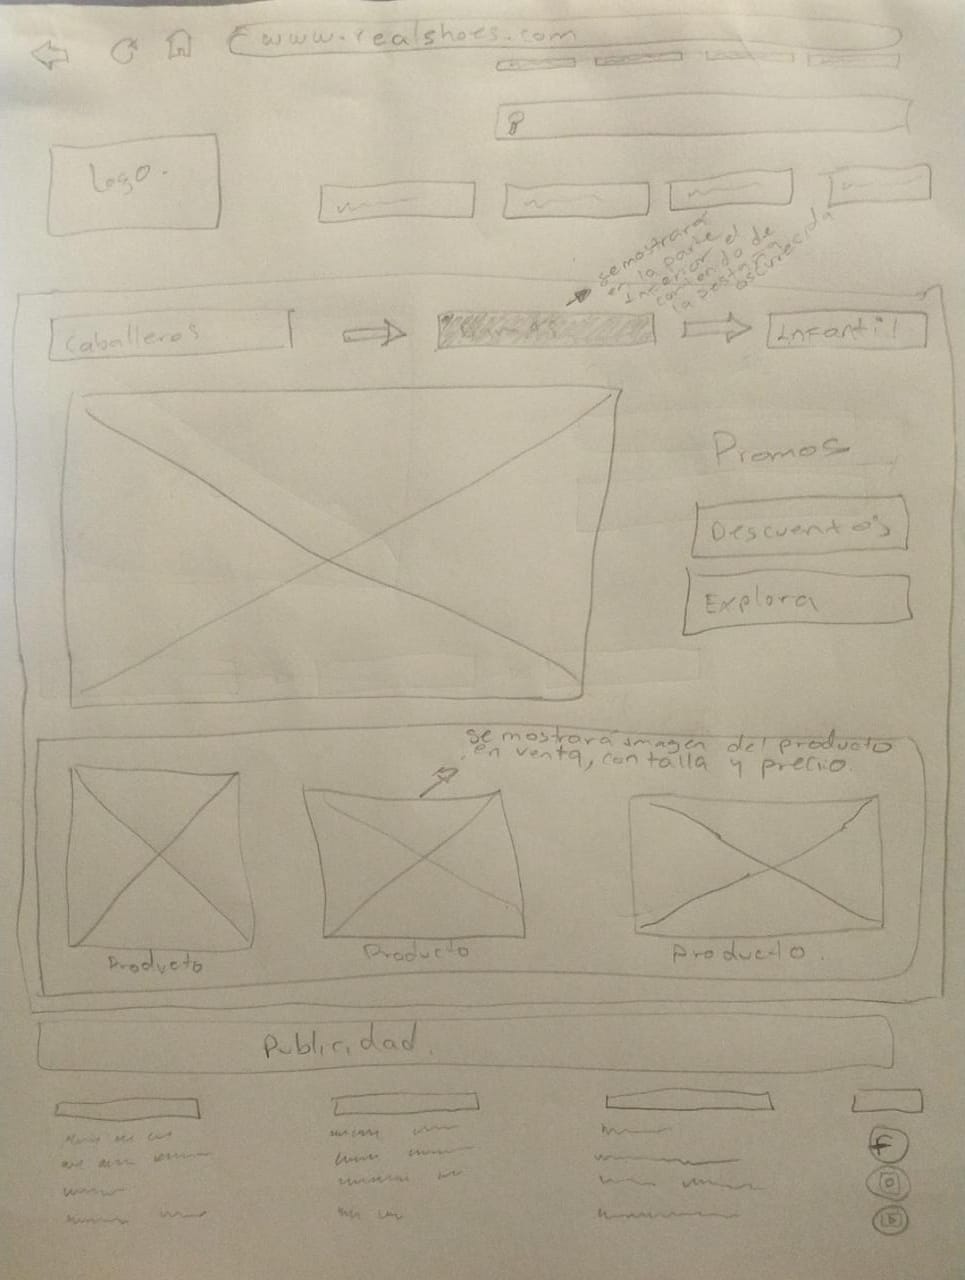 www.realshoes.com
Logo.
se mostrará
en la parte
inferior el
contenido de
la pestaña
oscurecida
Caballeros
Infantil
Promos
Descuentos
Explora
se mostrará imagen del producto
en venta, con talla y precio.
Producto
Producto
Producto.
Publicidad.
f